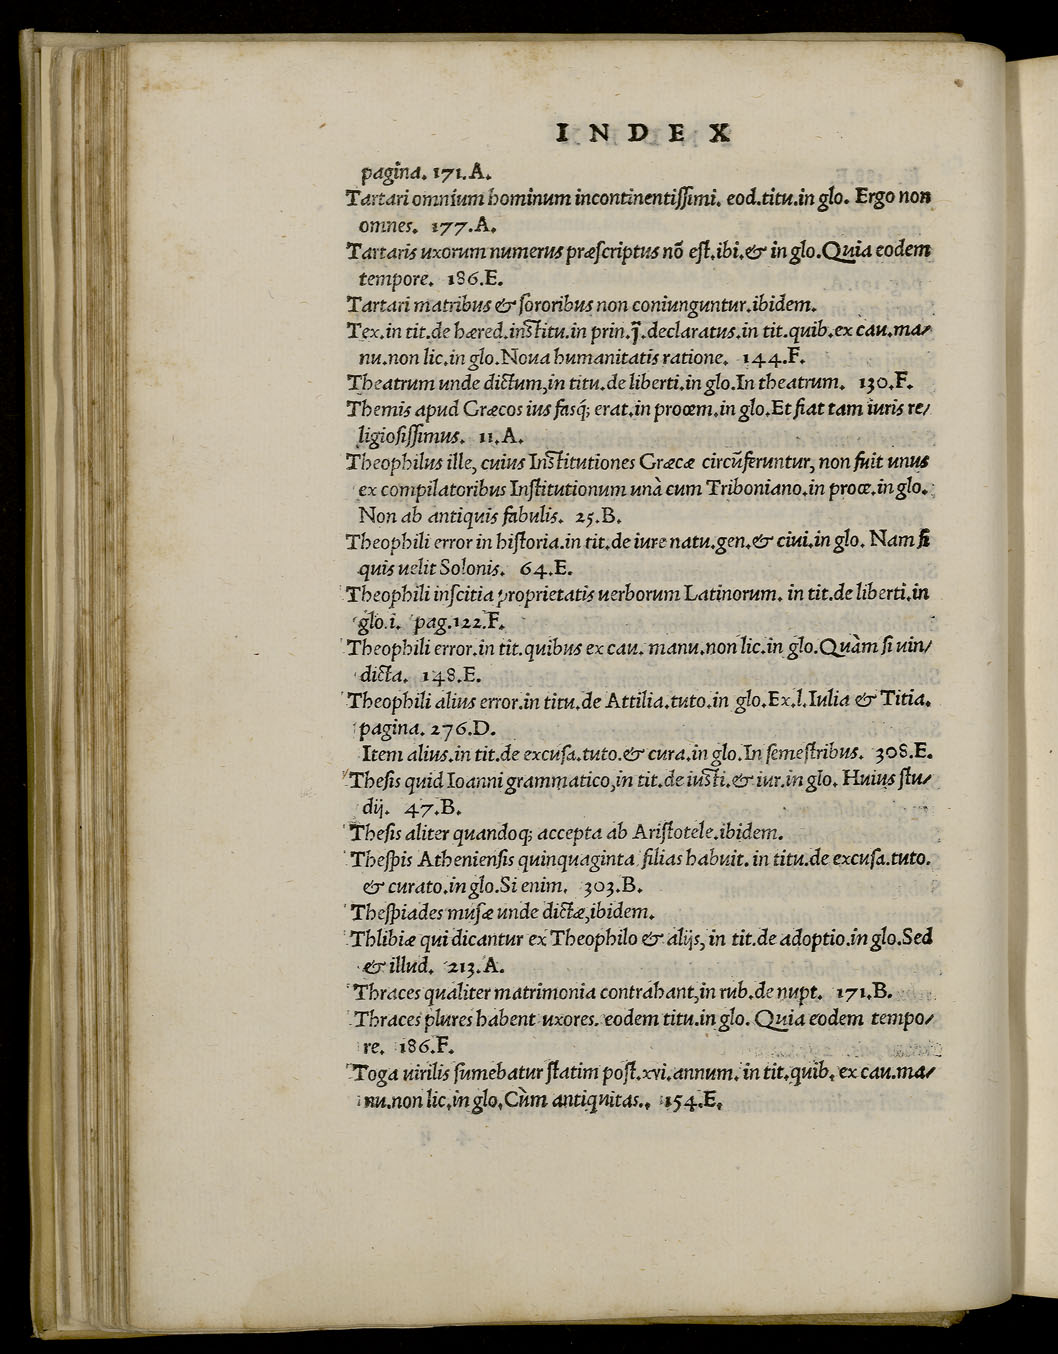 INDEX
pagina. 171.A.
Tartari omnium hominum incontinentißimi. eod.titu.in glo. Ergo non
omnes. 177.A.
Tartaris uxorum numerus præscriptus nõ est.ibi.& in glo.Quia eodem
tempore. 186.E.
Tartari matribus & sororibus non coniunguntur.ibidem.
Tex.in tit.de hæred.institu.in prin.j̃.declaratus.in tit.quib.ex cau.ma/
nu.non lic.in glo.Noua humanitatis ratione. 144.F.
Theatrum unde dictum,in titu.de liberti.in glo.In theatrum. 130.F.
Themis apud Græcos ius fasq́; erat.in proœm.in glo.Et fiat tam iuris re/
ligiosißimus. 11.A.
Theophilus ille, cuius Institutiones Græcæ circũferuntur, non fuit unus
ex compilatoribus Institutionum unà cum Triboniano.in proœ.in glo.
Non ab antiquis fabulis. 25.B.
Theophili error in historia.in tit.de iure natu.gen.& ciui.in glo. Nam si
quis uelit Solonis. 64.E.
Theophili inscitia proprietatis uerborum Latinorum. in tit.de liberti.in
glo.i. pag.122.F.
Theophili error.in tit.quibus ex cau. manu.non lic.in glo.Quàm si uin/
dicta. 148.E.
Theophili alius error.in titu.de Attilia.tuto.in glo.Ex.l.Iulia & Titia.
pagina. 276.D.
Item alius.in tit.de excusa.tuto.& cura.in glo.In semestribus. 308.E.
Thesis quid Ioanni grammatico,in tit.de iusti.& iur.in glo. Huius stu/
dij. 47.B.
Thesis aliter quandoq; accepta ab Aristotele.ibidem.
Thespis Atheniensis quinquaginta filias habuit. in titu.de excusa.tuto.
& curato.in glo.Si enim. 303.B.
Thespiades musæ unde dictæ,ibidem.
Thlibiæ qui dicantur ex Theophilo & alijs, in tit.de adoptio.in glo.Sed
& illud. 213.A.
Thraces qualiter matrimonia contrahant,in rub.de nupt. 171.B.
Thraces plures habent uxores. eodem titu.in glo. Quia eodem tempo/
re. 186.F.
Toga uirilis sumebatur statim post.xvi.annum. in tit.quib. ex cau.ma/
nu.non lic.in glo.Cùm antiquitas.. 154.E.